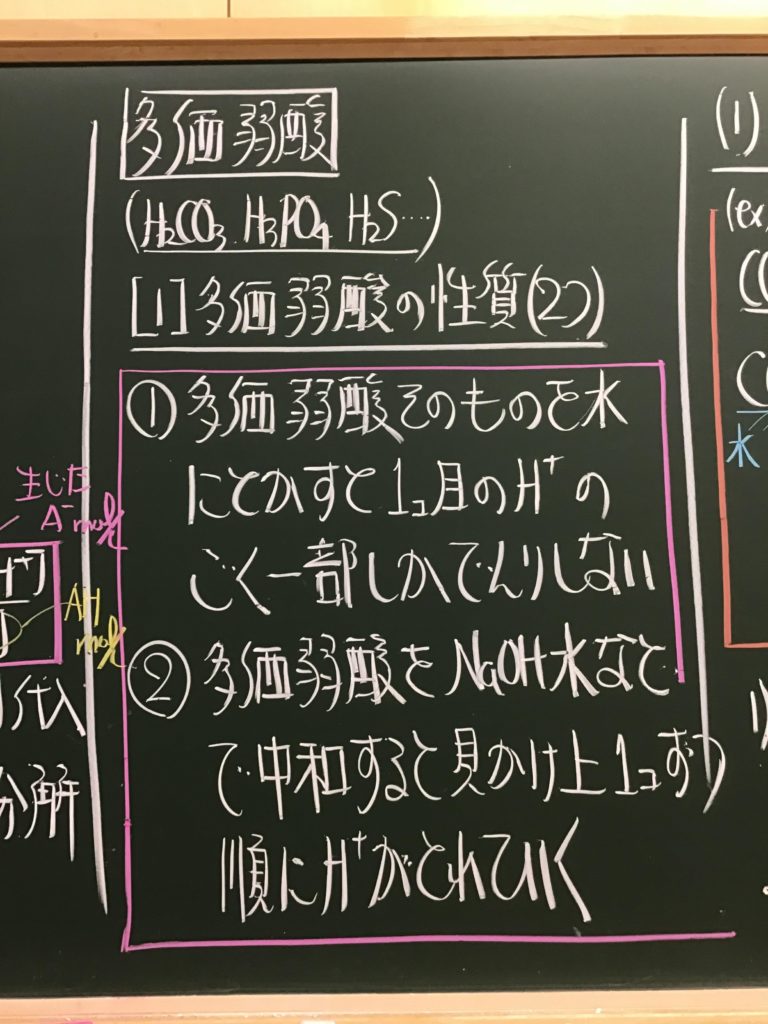 多価弱酸
(H₂CO₃ H₃PO₄ H₂S…)
[1]多価弱酸の性質(2つ)
① 多価弱酸そのものを水
にとかすと1コ目のH⁺の
ごく一部しかでんりしない
② 多価弱酸をNaOH水など
で中和すると見かけ上1コずつ
順にH⁺がとれていく
生じた
A⁻ mol/ℓ
AH
mol/ℓ
代入
分解
(1)
(ex)
水